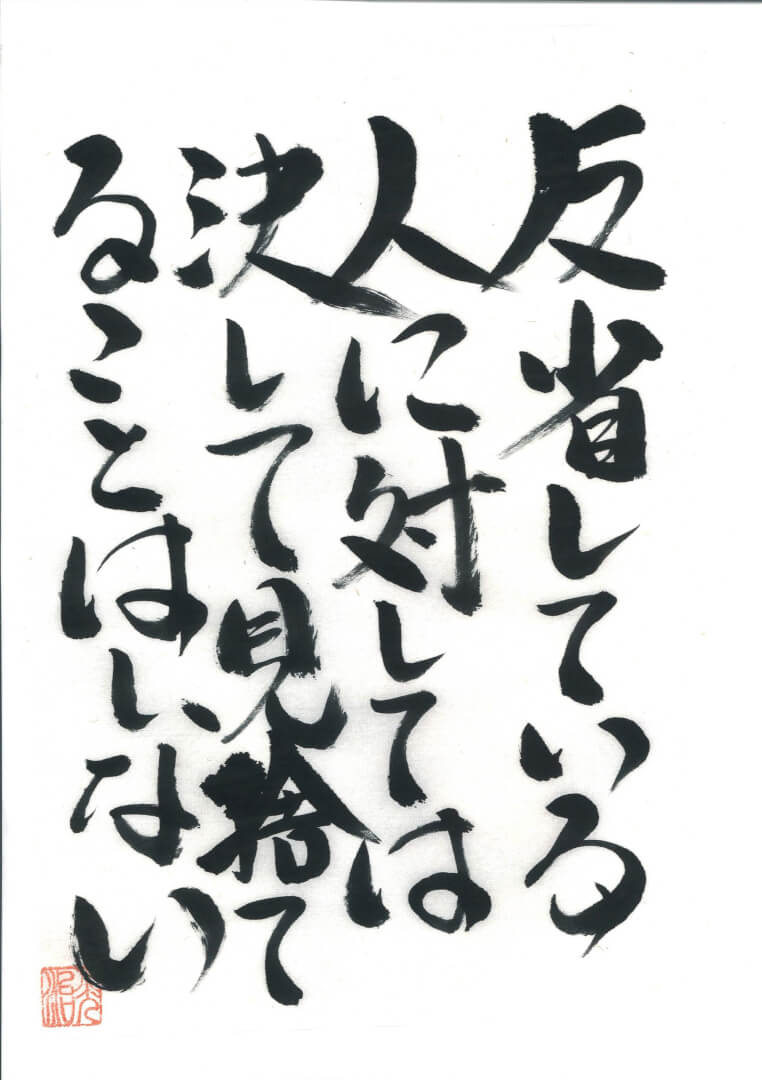 反省している
人に対しては
決して見捨て
ることはしない